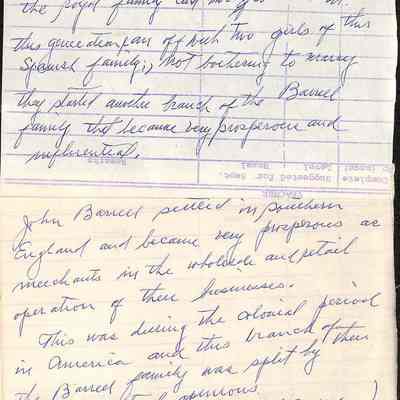 the royal family
this generation pair off with two girls of this
Spanish family; not bothering to marry
they started another branch of the Barrel
family that became very prosperous and
influential.
Remarks
Complete Suggested for Sept.
TEACHER
John Barrel settled in southern
England and became very prosperous as
merchants in the wholesale and retail
operation of their businesses.
This was during the colonial period
in America and this branch of their
the Barrel family was split by
opinions